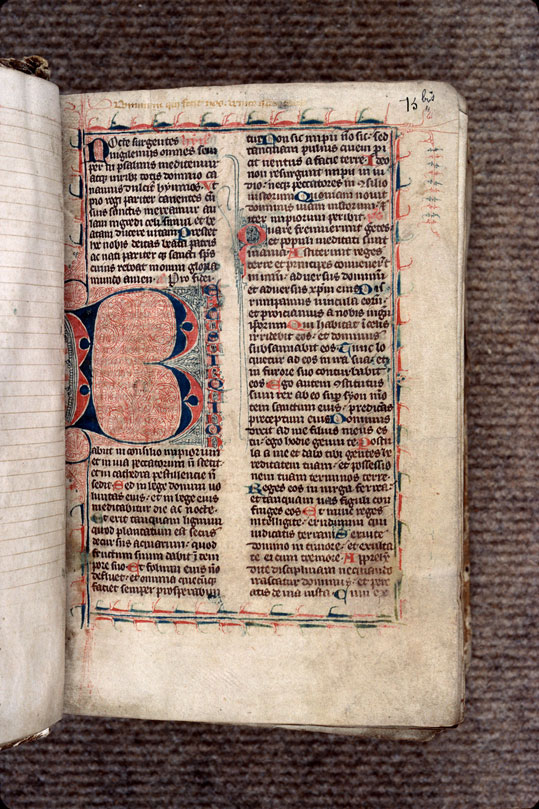 13 bis
Octe surgentes
uigilemus omnes sem
per in psalmis meditemur
atqz uirib totis domino ca
namus dulcit hymnos Vt
pio regi pariter canentes cu
suis sanctis mereamur au
lam ingredi celi simul et be
atam ducere uitam Prestet
hoc nobis deitas beata patris
ac nati pariter qz sancti sps
cuius reboat
mundo amen
B
EATUS UIR QUI NON
abiit in consilio impiorum
et in uia peccatorum n stetit
et in cathedra pestilencie n
sedit Sed in lege domini uo
luntas eius et in lege eius
meditabitur die ac nocte
Et erit tanquam lignum
quod plantatum est secus
decursus aquarum quod
fructum suum dabit i tem
pore suo Et folium eius no
defluet et omnia quecuqz
faciet semper prosperabun
tur Non sic impii no sic sed
tanquam puluis quem p
icit uentus a facie terre Ideo
non resurgunt impii in iu
dicio neqz peccatores in osilio
iustorum Quoniam nouit
dominus uiam iustorum
iter impiorum peribit
Quare fremuerunt getes
et populi meditati sunt
inania Astiterunt reges
terre et principes conuenerut
in unum aduersus dominum
et aduersus xpm eius Di
rumpamus uincula eorum
et proiciamus a nobis iugum
ipsorum Qui habitat i celis
irridebit eos et dominus
subsannabit eos Tunc lo
quetur ad eos in ira sua et
in furore suo conturbabit
eos Ego autem ostitutus
sum rex ab eo sup syon mo
tem sanctum eius predicas
preceptum eius Dominus
dixit ad me filius meus es
tu ego hodie genui te Postu
la a me et dabo tibi gentes he
reditatem tuam et possessio
nem tuam terminos terre
Reges eos in uirga ferrea
et tanquam uas figuli con
fringes eos Et nunc reges
intelligite erudimini qui
iudicatis terram Seruite
domino in timore et exulta
te ei cum tremore Appreh
dite disciplinam nequando
irascatur dominus et pere
atis de uia iusta Cum ex